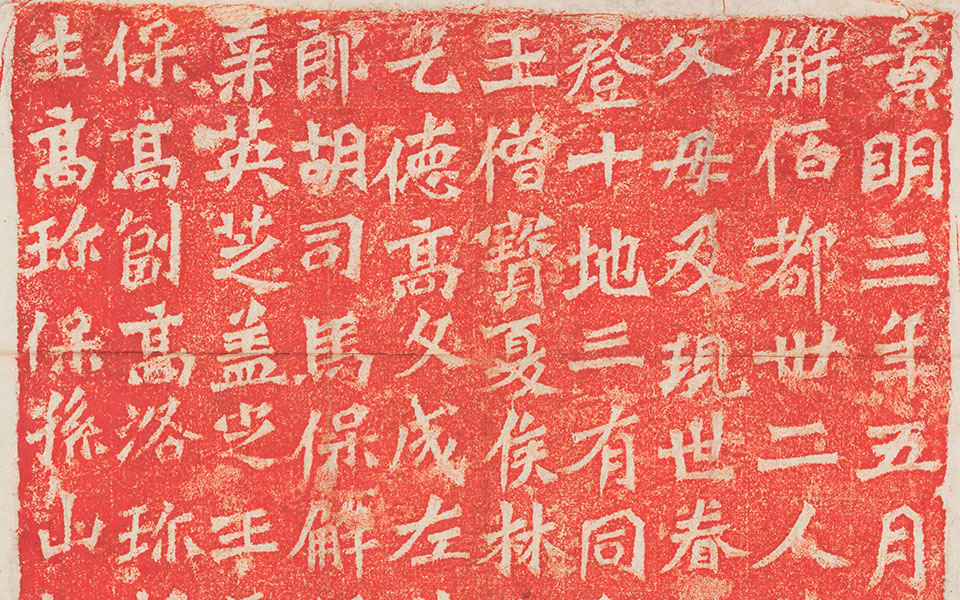 景明三年五月
解佰都丗二人
父母及現世眷
登十地三有同
王僧賢夏侯林
乞德高文成左
郎胡司馬保解
英芝盖之王
保高劄高洛珎
生高珎保孫山